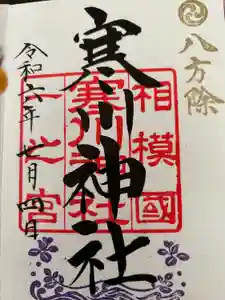 八方除
相模國
寒川神社
寒川神社
一之宮
令和六年七月四日